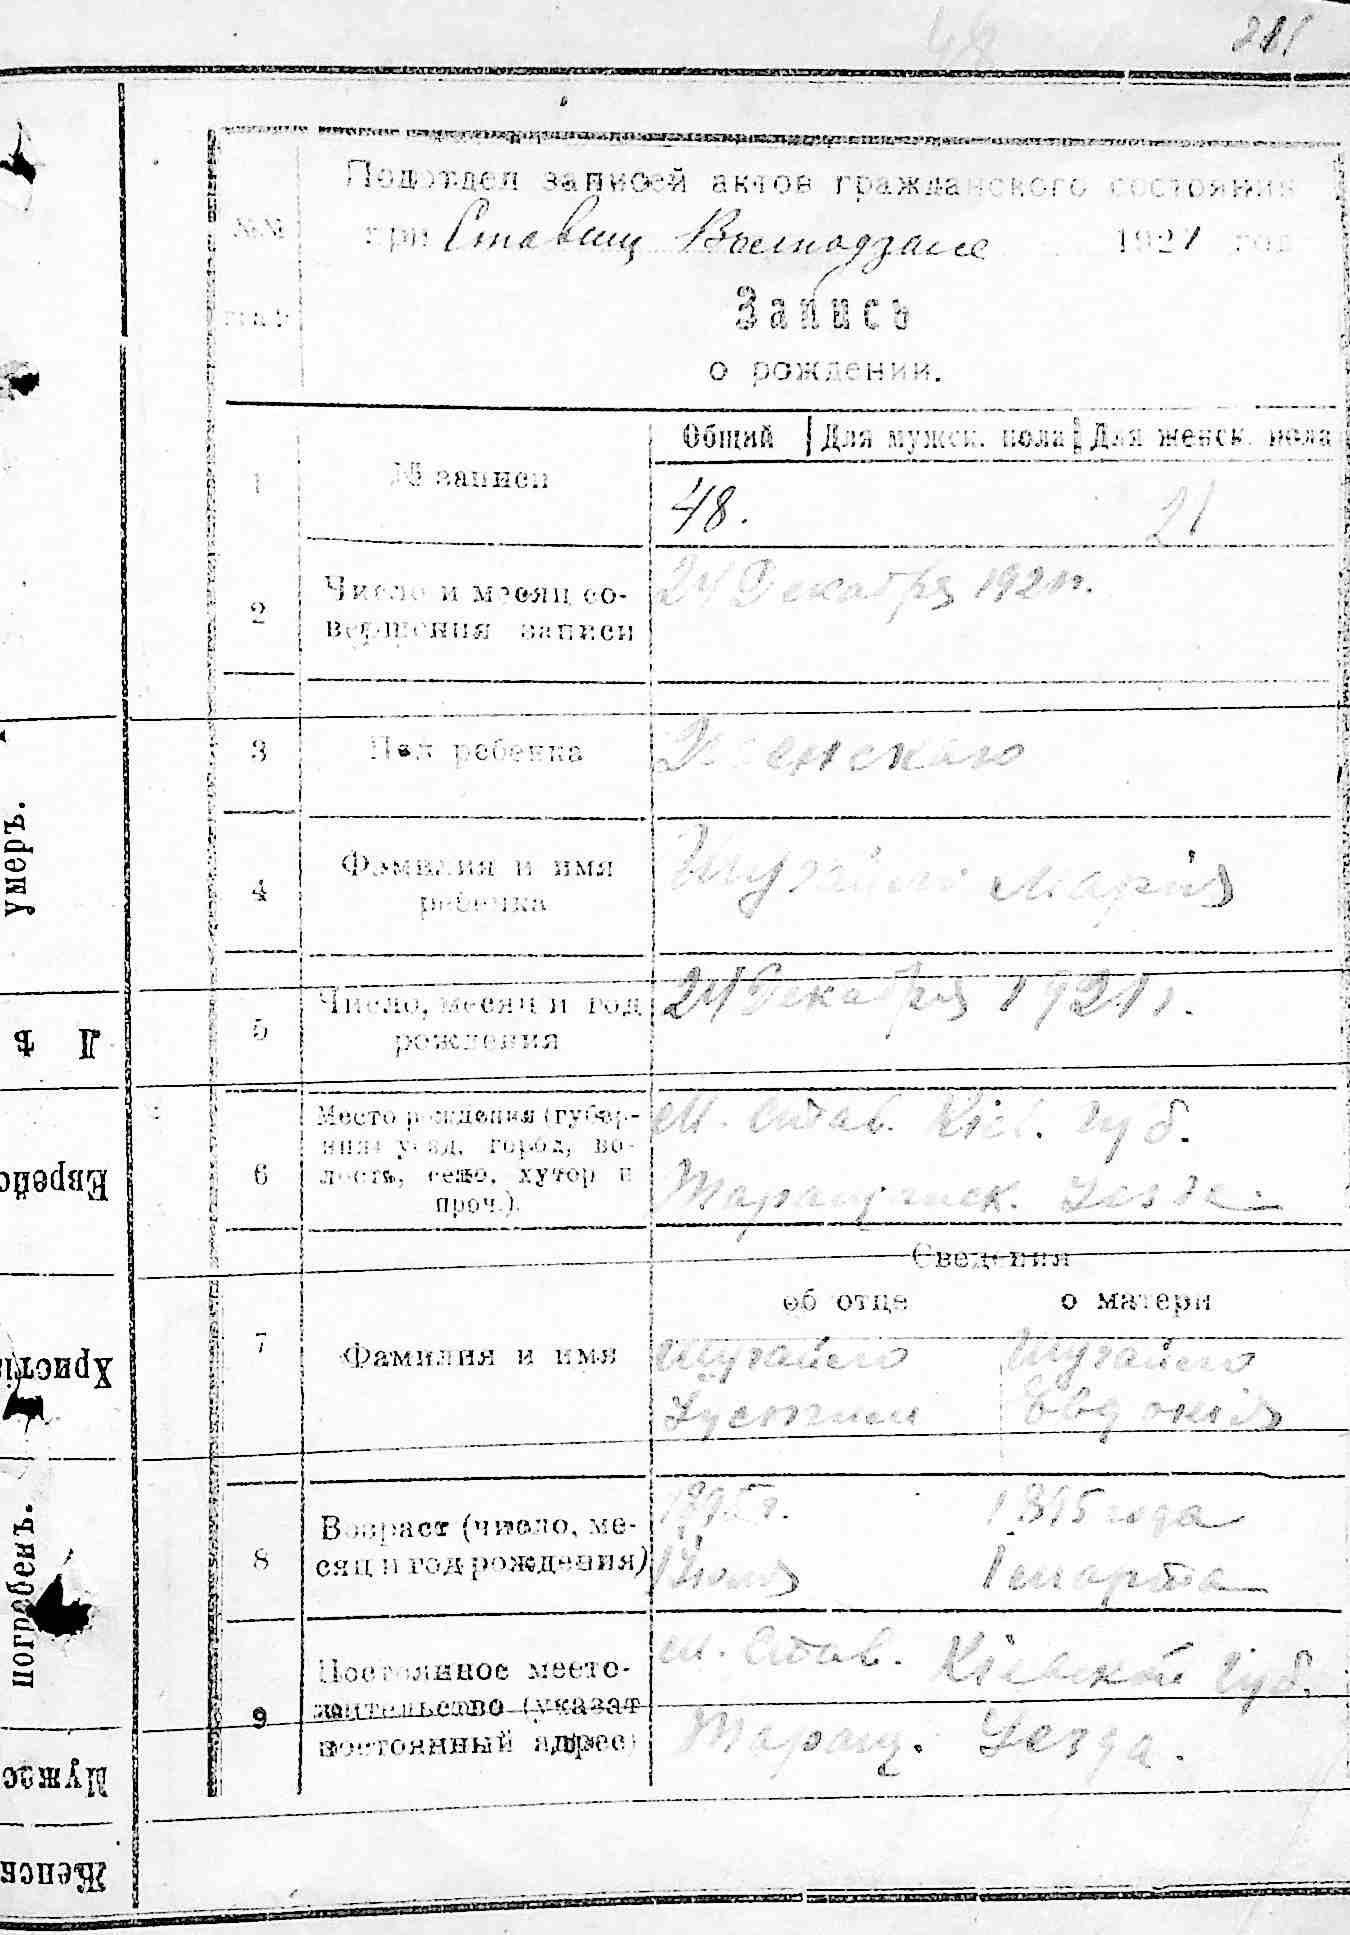 211
Подотдел записей актов гражданского состояния
№№ при Ставищ 1921 год
Запись
о рождении.
Общий Для мужск. пола Для женск. пола
1 № записи
48. 21
2 Число и месяц со-
вершения записи
24 Декабря 1921 г.
3 Пол ребенка
Женскаго
4 Фамилия и имя
ребенка
Марія
5 Число, месяц и год
рождения
24 Декабря 1921 г.
6 Место рождения (губер-
ния уезд, город, во-
лость, село, хутор и
проч.).
М. Став. Кіев. губ.
Таращанск. Уезда
Сведения
об отце о матери
7 Фамилия и имя
Шугайло Шугайло
Устин Евдокія
8 Возраст (число, ме-
сяц и год рождения)
1895 г. года
Марта
9 Постоянное место-
жительство (указат
постоянный адрес)
м. Став. Кіевской губ.
Таращ. Уезда.
умеръ.
Л ѣ
Еврейс
Христіа
погребенъ.
Мужес
Женск